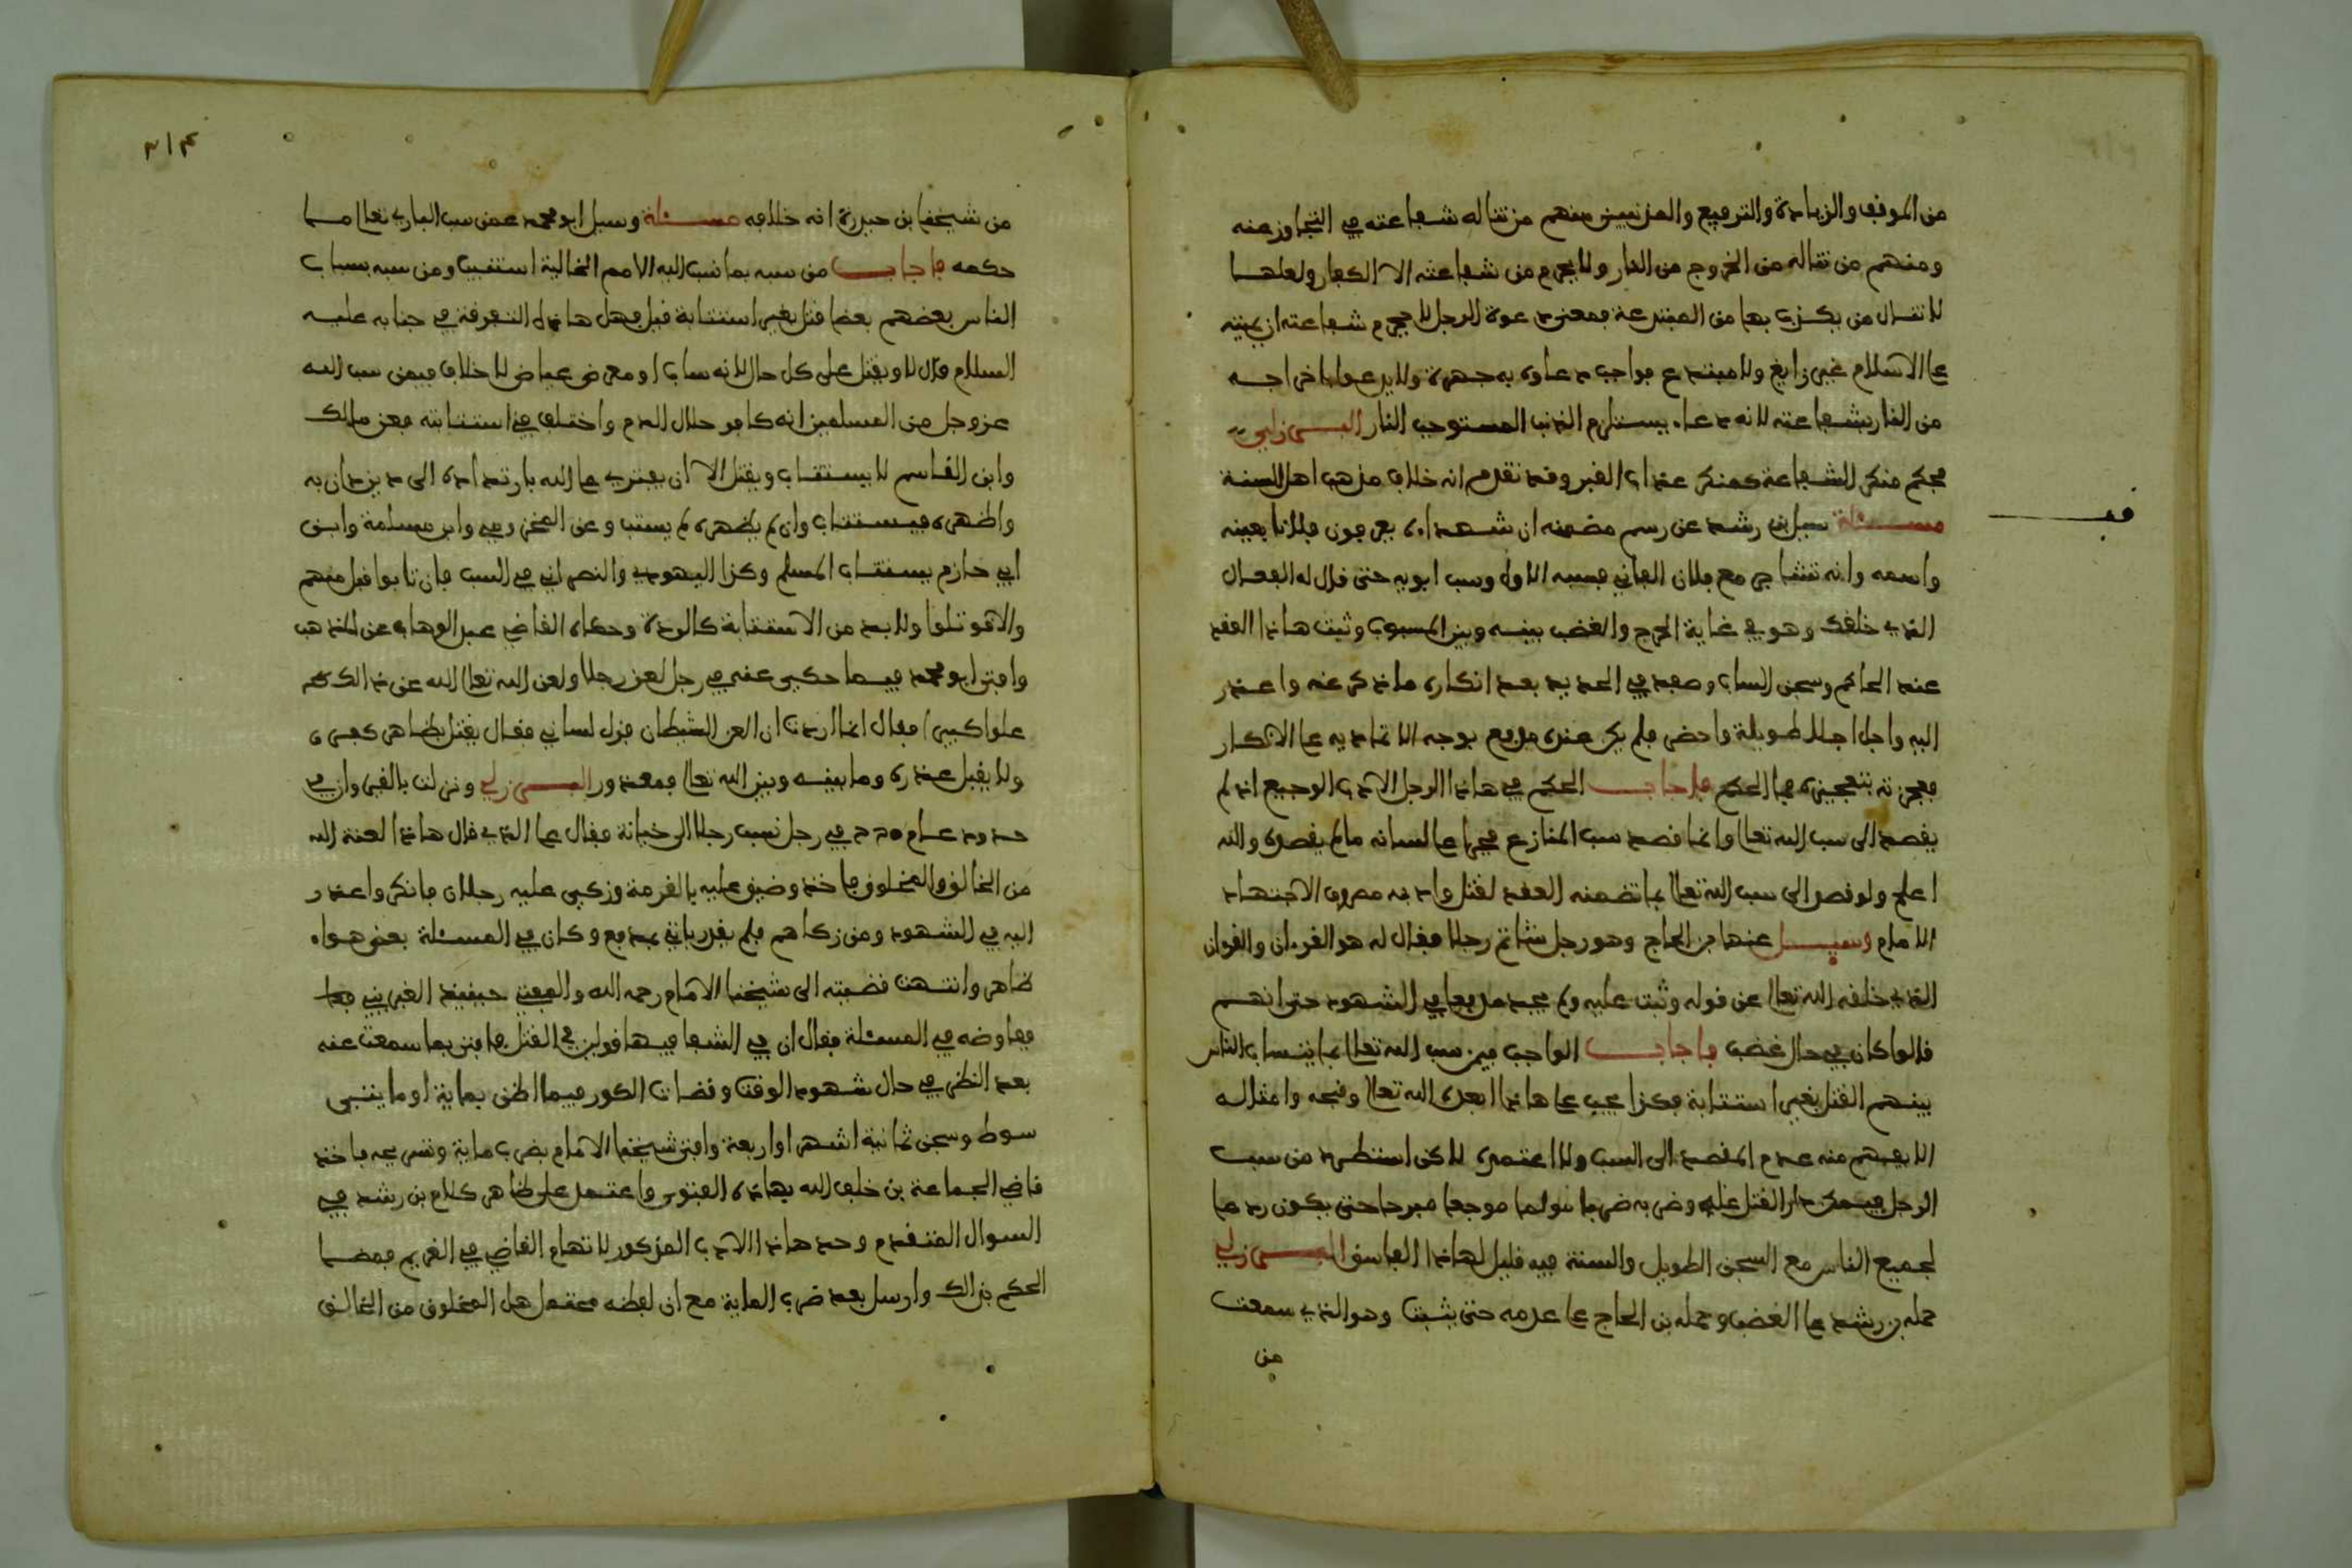 من الموقف والزيادة والترفيع والمذنبين منهم من تناله شفاعته في التجاوز عنه
ومنهم من تناله من الخروج من النار ولا يحرم من شفاعته الا الكفار ولعلها
لا تنال من يكذب بها من المبتدعة فمعنى دعوة الرجل لا تحرم شفاعته ان يميته
على الاسلام غير زايغ ولا مبتدع فواجب دعاوه به جهرة ولا يدعوا باخراجه
من النار بشفاعته لانه دعاء يستلزم الذنب المستوجب النار البرزلي
فحكم منكر الشفاعة كمنكر عذاب القبر وقد تقدم انه خلاف مذهب اهل السنة
مسئلة سيل ابن رشد عن رسم مضمنه ان شهداءه يعرفون فلانا بعينه
واسمه وانه تشاجر مع فلان الفاني فسبه الاول وسب ابويه حتى قال له الفعال
الذي خلقك وهو في غاية الحرج والغضب بينه وبين المسبوب وثبت هاذا العقد
عند الحاكم وسجن الساب وصفد في الحديد بعد انكاره ما ذكر عنه واعذر
اليه واجل اجالا طويلة واحضر فلم يكن عنده مدفع بوجه الا تماديه على الانكار
فعجزته بتعجيزه فما الحكم فاجاب الحكم في هاذا الرجل الادب الوجيع اذ لم
يقصد الى سب الله تعالى وانما قصد سب المنازع فجرا على لسانه ما لم يقصده والله
اعلم ولو قصد الى سب الله تعالى بما تضمنه العقد لقتل وادبه مصروف لاجتهاد
الامام وسيل عنها بن الحاج وهو رجل شاتم رجلا فقال له هو القرنان والقران
الذي خلقه الله تعالى عن قوله وثبت عليه ولم يجد مدفعا في الشهود حتى انهم
قالوا كان في حال غضب فاجاب الواجب فيمن سب الله تعالى بما يتساب الناس
بينهم القتل بغير استتابة فكذا يجب على هاذا ابعده الله تعالى وقبحه وامثاله
الا يفهم منه عدم المقصد الى السب ولا اعتمده لاكن استطرد من سب
الرجل القتل عليه وضربه ضربا مولما موجعا مبرحا حتى يكون ردعا
لجميع الناس مع السجن الطويل والسنة فيه قليل لهاذا الفاسق البرزلي
حمله بن رشد على الغضب وحمله بن الحاج على عدمه حتى يثبت وهو الذي سمعت
من
قف
٣١٤
من شيخنا بن حيدرة انه خلافه مسئلة وسيل ابو محمد عمن سب الباري تعالى ما
حكمه فاجاب من سبه بما نسب اليه الامم الخالية استتيب ومن سبه بسباب
الناس بعضهم بعضا قتل بغير استتابة قيل فهل هاذه التفرقة في جنابه عليه
السلام قال لا ويقتل على كل حال لانه ساب او معرض عياض لا خلاف فيمن سب الله
عز وجل من المسلمين انه كافر حلال الدم واختلف في استتابته فعن مالك
وابن القاسم لا يستتاب ويقتل الا ان يفترى على الله بارتداده الى دين دان به
واظهره فيستتاب وان لم يظهره لم يستتب وعن المخزومي وابن مسلمة وابن
ابي حازم يستتاب المسلم وكذا اليهودي والنصراني في السب فان تابوا قبل منهم
والا قوتلوا ولا بد من الاستتابة كالردة وحكاه القاضي عبد الوهاب عن المذهب
وافتى ابو محمد فيما حكي عنه في رجل لعن رجلا ولعن الله تعالى الله عن ذالك
علوا كبيرا فقال انما اردت ان العن الشيطان فزل لساني فقال يقتل بظاهر كفره
ولا يقبل عذره وما بينه وبين الله تعالى فمعذور البرزلي ونزلت بالقيروان في
حدود عام في رجل نسب رجلا الى خيانة فقال على الذي قال هاذا لعنة الله
من الخالق والمخلوق فاخذ وضيق عليه بالغرمة وزكي عليه رجلان فانكر واعذر
اليه في الشهود ومن زكاهم فلم يقدر ياتي بمدفع وكان في المسئلة بعض هواء
ظاهر وانتهت قضيته الى شيخنا الامام رحمه الله والمفتي حينيذ الغبريني
فعاوضه في المسئلة فقال ان في الشفا فيها قولين في القتل فافتى بما سمعت عنه
بعد النظر في حال شهود الوقت وقضات الكور فيما اظن بماية او مايتي
سوط وسجن ثمانية اشهر او اربعة وافتى شيخنا الامام بضرب ماية وتسريحه فاخذ
قاضي الجماعة بن خلف الله بهاذه الفتوى واعتمد على ظاهر كلام بن رشد في
السوال المتقدم وحد هاذا الادب المذكور لاتهام القاضي في الغريم فمضا
الحكم بذالك وارسل بعد ضرب الماية مع ان لفظه محتمل هل المخلوق من الخالق